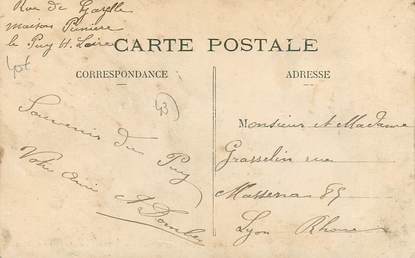 Rue de Gazelle
maison Pinière
le Puy Hte Loire
CARTE POSTALE
CORRESPONDANCE
ADRESSE
43
Souvenir du Puy
Votre ami A.
Monsieur et Madame
Grasselin rue
Massena 85
Lyon Rhone